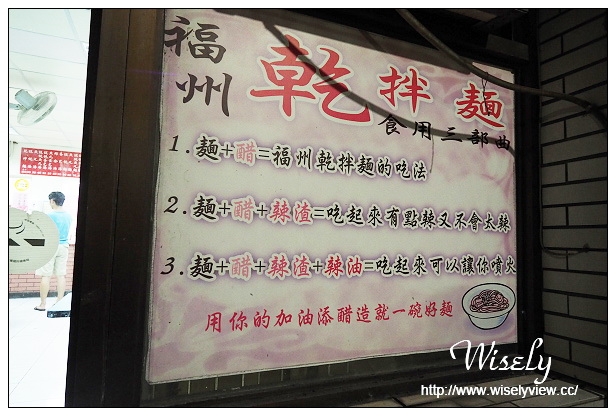 福州
乾拌麵
食用三部曲
1.麵+醋=福州乾拌麵的吃法
2.麵+醋+辣渣=吃起來有點辣又不會太辣
3.麵+醋+辣渣+辣油=吃起來可以讓你噴火
用你的加油添醋造就一碗好麵
Wisely
http://www.wiselyview.cc/